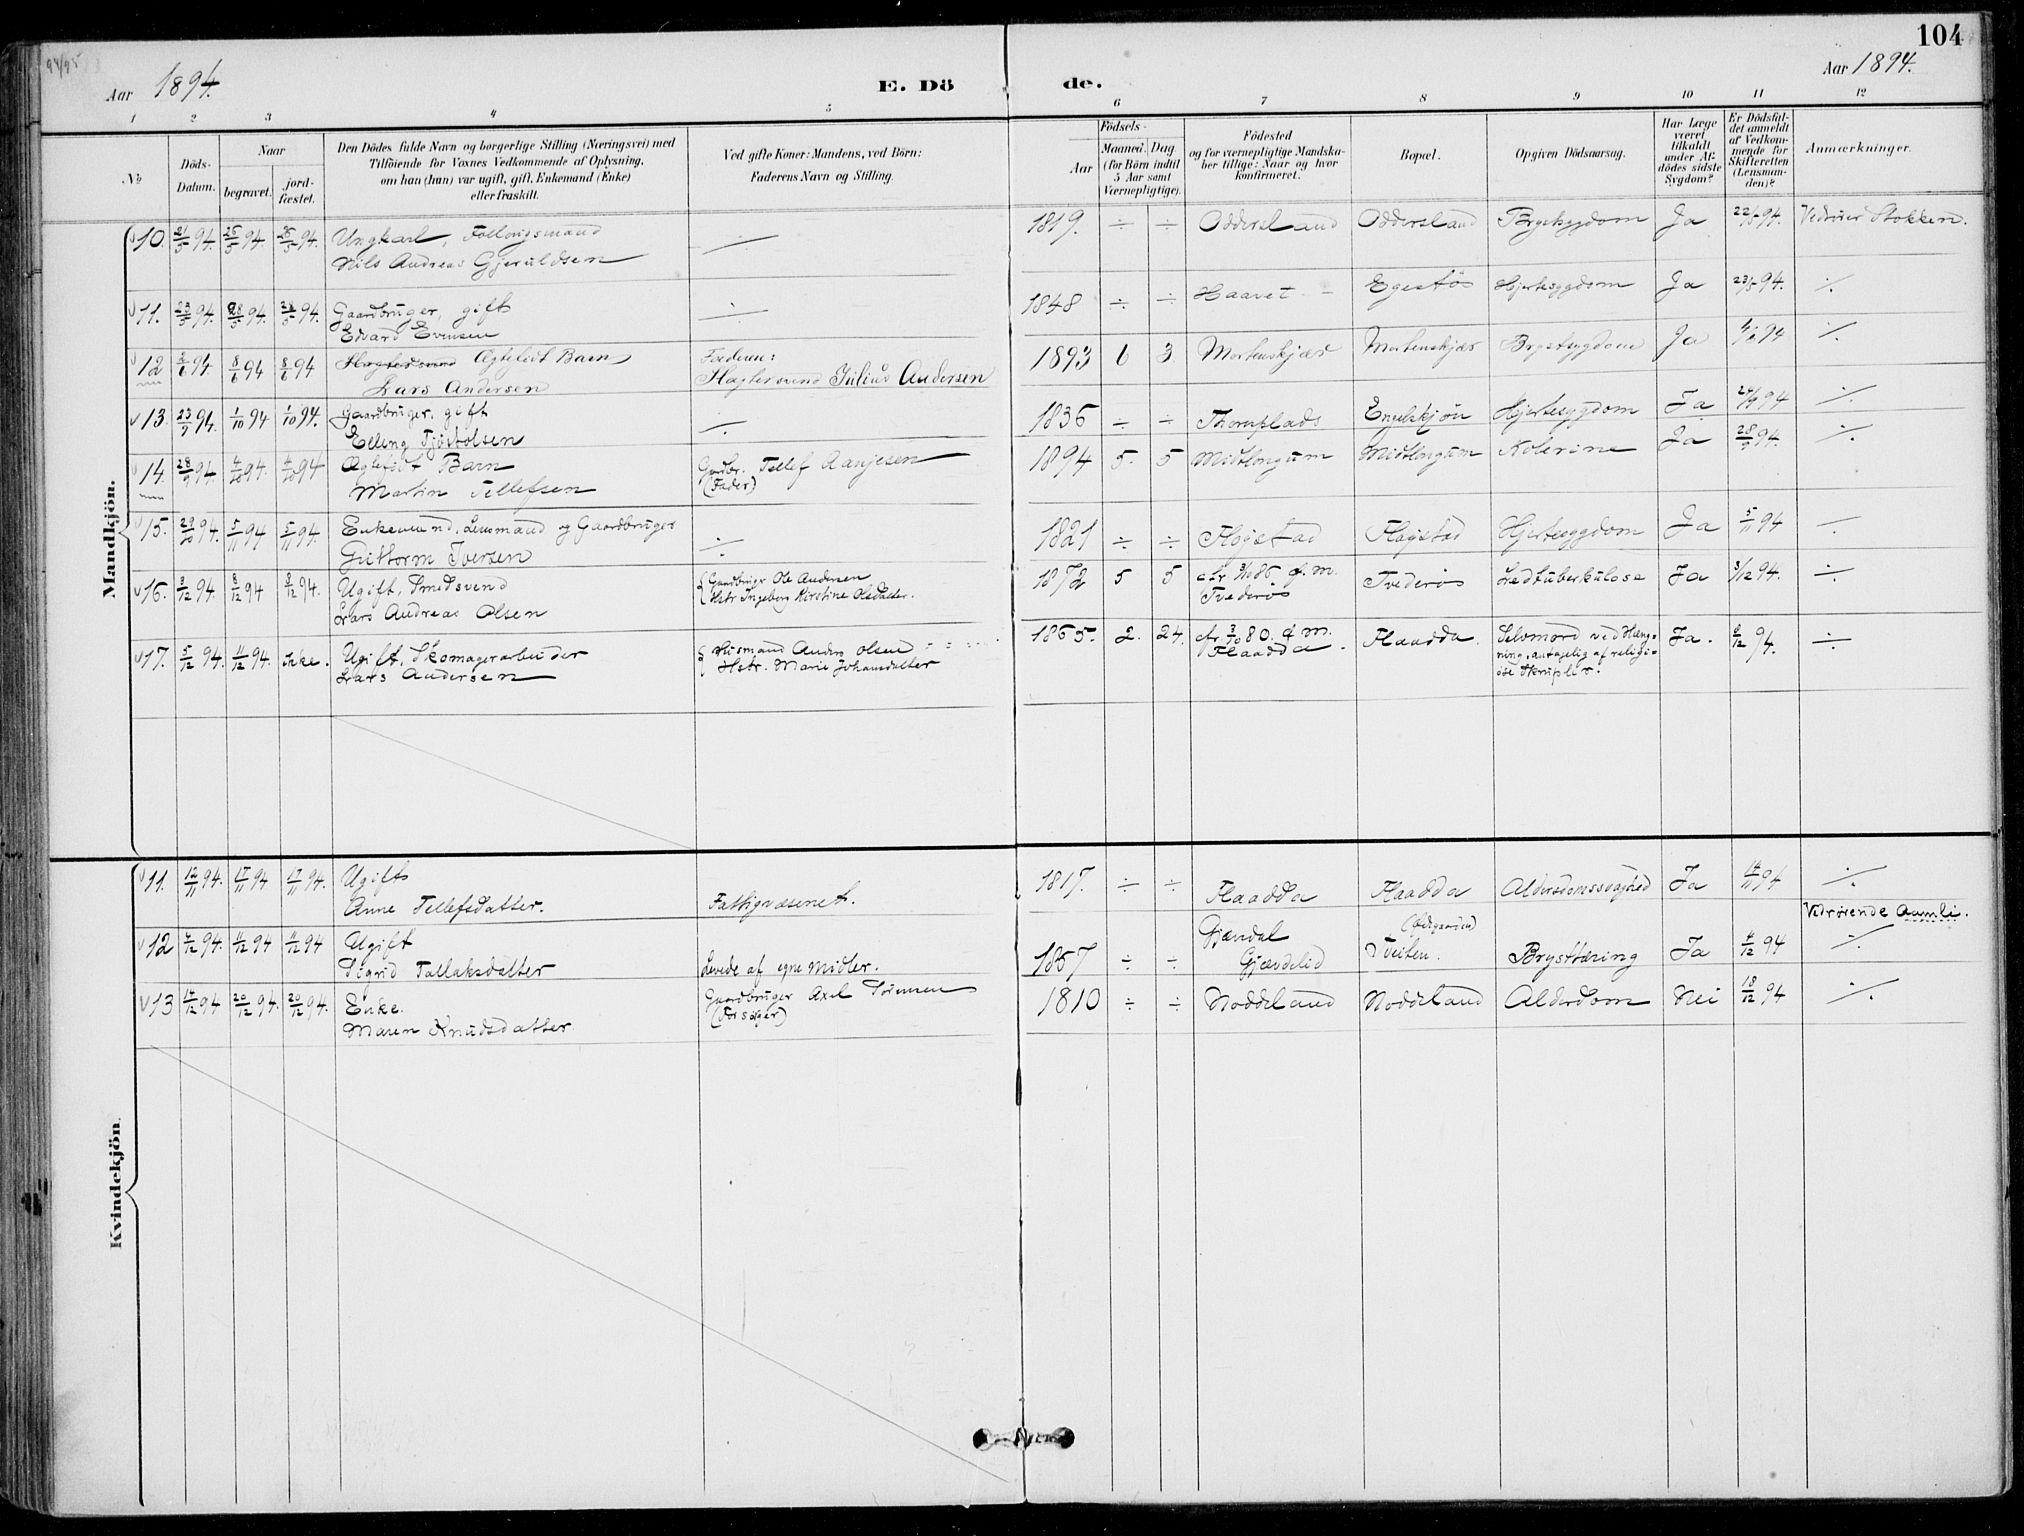 94/95
104
Aar 1894.
E. Dö de.
Aar 1894.
1 2 3 4 5 6 7 8 9 10 11 12
№
Döds-Datum.
Naar
begravet.
jord-fæstet.
Den Dödes fulde Navn og borgerlige Stilling (Næringsvei) med
Tilföiende for Voxnes Vedkommende af Oplysning,
om han (hun) var ugift, gift, Enkemand (Enke)
eller fraskilt.
Ved gifte Koner: Mandens, ved Börn:
Faderens Navn og Stilling.
Födsels-
Aar
Maaned. Dag
(for Börn indtil
5 Aar samt
Værnepligtige).
Födested
og for værnepligtige Mandska-
ber tillige: Naar og hvor
konfirmeret.
Bopæl.
Opgiven Dödsaarsag.
Har Læge
været
tilkaldt
under Af-
dödes sidste
Sygdom?
Er Dödsfal-
det anmeldt
af Vedkom-
mende for
Skifteretten
(Lensman-
den)?
Anmærkninger.
Mandkjön.
10. 21/5 94. 26/5 94 26/5 94. Ungkarl, Follaugsmand ÷ 1819. ÷ ÷ Oddersland Oddersland Brystsygdom Ja 22/5 94. Vedrører Stokken.
Nils Andreas Gjeruldsen
11. 23/5 94. 28/5 94. 28/5 94. Gaardbruger, gift ÷ 1848 ÷ ÷ Haavet Egestøs Hjertesygdom Ja 23/5 94. ÷
Edvard Evensen
12 2/6 94. 8/6 94 8/6 94 Ægtefødt Barn Faderen: 1893 6 3 Mortenskjær Mortenskjær Brystsygdom Ja 4/6 94 ÷
Lars Andersen Hagtersvend Julius Andersen
13. 23/9 94. 1/10 94 1/10 94. Gaardbruger, gift ÷ 1836 ÷ ÷ Thomplads Engelskjøn Hjertesygdom Ja 24/9 94 ÷
Elling Tjøstolsen
14. 28/9 94. 4/10 94. 4/10 94 Ægtefødt Barn Gaardbr. Tellef Aanjesen 1894 5. 5 Midtlongum Midtlongum Kolerine Ja 28/9 94. ÷
Martin Tellefsen (Fader)
15. 29/10 94. 5/11 94 5/11 94. Enkemand, Lensmand og Gaardbruger ÷ 1821 ÷ ÷ Fløistad Fløistad Hjertesygdom Ja 5/11 94 ÷
Guttorm Iversen
16. 3/12 94. 8/12 94 8/12 94. Ugift, Smedsvend Gaardbruger Ole Andersen 1872 5 5 cfr 3/10 86. ø. M. Tvederøs Ledtuberkulose Ja 3/12 94. ÷
Lars Andreas Olsen Hstr Ingeborg Kirstine Olsdatter. Tvederøs
17. 5/12 94. 11/12 94. ikke. Ugift, Skomagerarbeider Husmand Anders Olsen 1865. 2. 24. cfr. 3/10 80. ø M. Flaadda. Selvmord ved Hæng- Ja. 6/12 94. ÷
Lars Andersen Hstr. Marie Johansdatter Flaadda. ning, antagelig af religi-
øse Skrupler.
Kvindekjön.
11. 12/11 94. 17/11 94 17/11 94. Ugift 1817. ÷ ÷ Flaadda Flaadda Alderdomssvaghed Ja 14/11 94 ÷
Anne Tellefsdatter. Fattigvæsenet.
Vedrørende Aamli.
12 4/12 94. 11/12 94 11/12 94 Ugift 1857 ÷ ÷ Gjævdal Tveiten. Brysttæring Ja 4/12 94 ÷
Sigrid Tallaksdatter Levede af egne Midler. Gjævdelid
13 14/12 94 20/12 94. 20/12 94. Enke. Gaardbruger Axel Sørensen 1810 ÷ ÷ Noddeland Noddeland Alderdom Nei 18/12 94 ÷
Maren Knudsdatter (Forsørger)